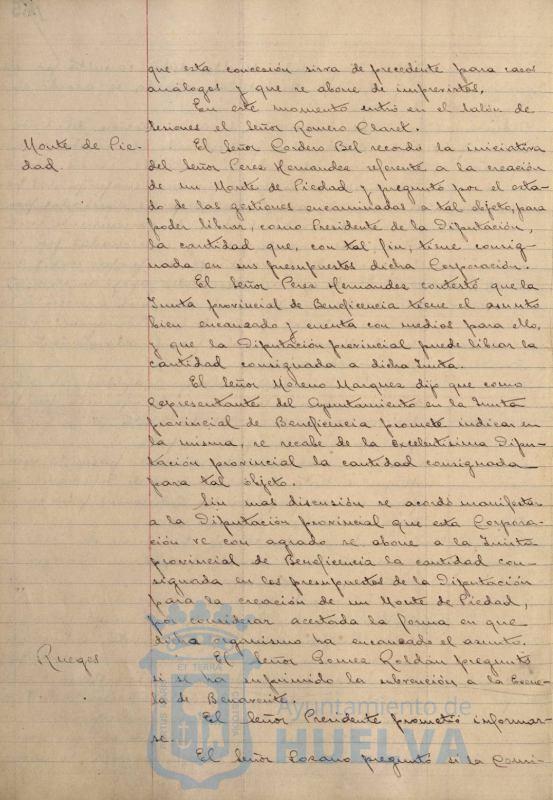 que esta concesión sirva de precedente para casos
análogos y que se abone de imprevistos.
En este momento entró en el salón de
sesiones el Señor Romero Claret.
Monte de Pie-
dad.
El Señor Cordero Bel recordó la iniciativa
del Señor Perez Hernandez referente a la creación
de un Monte de Piedad y preguntó por el esta-
do de las gestiones encaminadas a tal objeto, para
poder librar, como Presidente de la Diputación,
la cantidad que, con tal fin, tiene consig-
nada en sus presupuestos dicha Corporación.
El Señor Perez Hernandez contestó que la
Junta provincial de Beneficencia tiene el asunto
bien encauzado y cuenta con medios para ello,
y que la Diputación provincial puede librar la
cantidad consignada a dicha Junta.
El Señor Moreno Marquez dijo que como
representante del Ayuntamiento en la Junta
provincial de Beneficencia promete indicar en
la misma, se recabe de la Excelentísima Dipu-
tación provincial la cantidad consignada
para tal objeto.
Sin mas discusión se acordó manifestar
a la Diputación provincial que esta Corpora-
ción ve con agrado se abone a la Junta
provincial de Beneficencia la cantidad con-
signada en los presupuestos de la Diputación
para la creación de un Monte de Piedad,
por considerar acertada la forma en que
dicho organismo ha encauzado el asunto.
Ruegos
El Señor Gomez Roldán preguntó
si se ha suprimido la subvención a la Escue-
la de Benavente.
El Señor Presidente prometió informar-
se.
El Señor Lozano preguntó si la Comi-
Ayuntamiento de
HUELVA